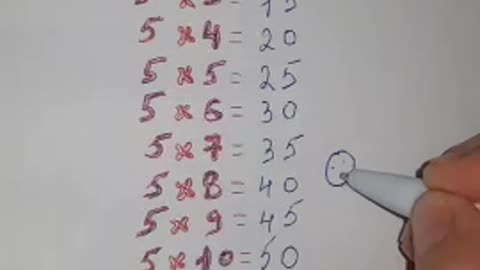 5 x 3 = 15
5 x 4 = 20
5 x 5 = 25
5 x 6 = 30
5 x 7 = 35
5 x 8 = 40
5 x 9 = 45
5 x 10 = 50